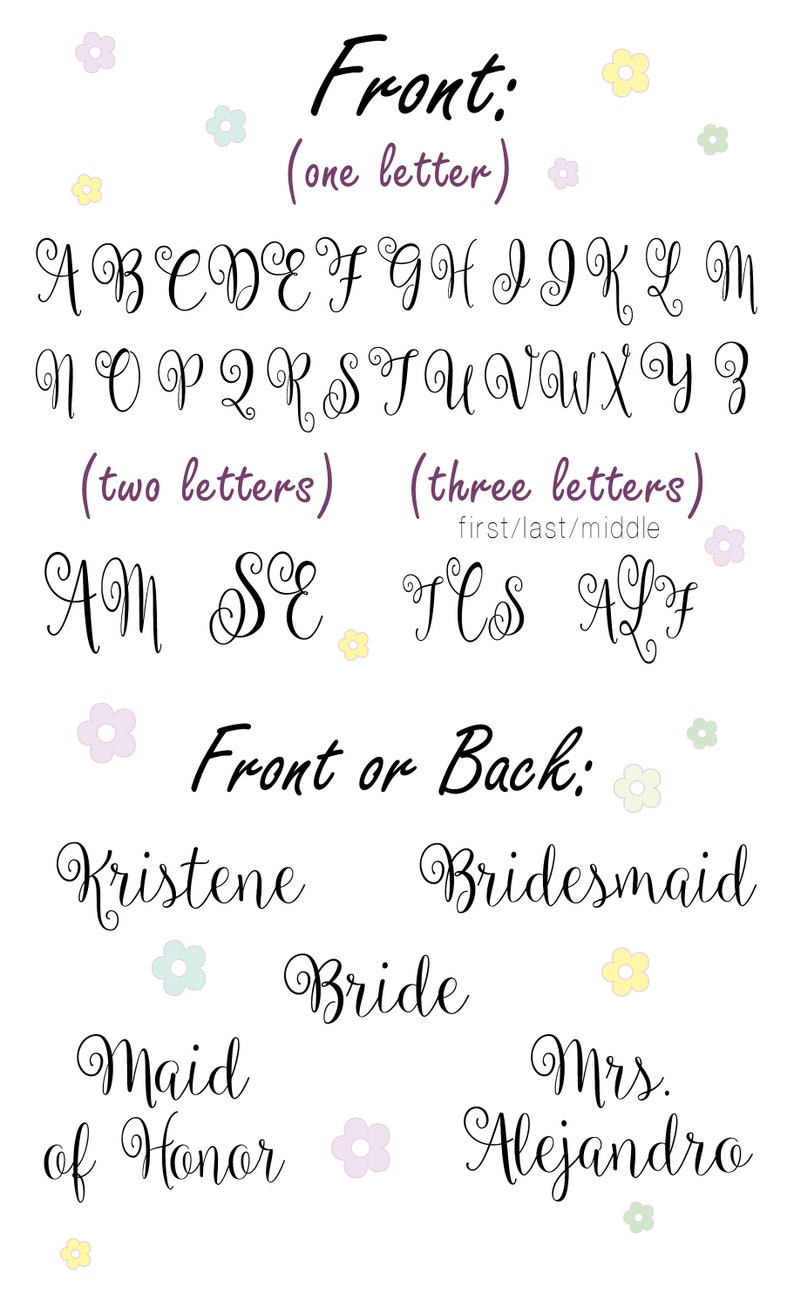 Front:
(one letter)
A B C D E F G H I J K L M
N O P Q R S T U V W X Y Z
(two letters) (three letters)
first/last/middle
AM SE TCS ALF
Front or Back:
Kristene Bridesmaid
Bride
Maid
of Honor
Mrs.
Alejandro